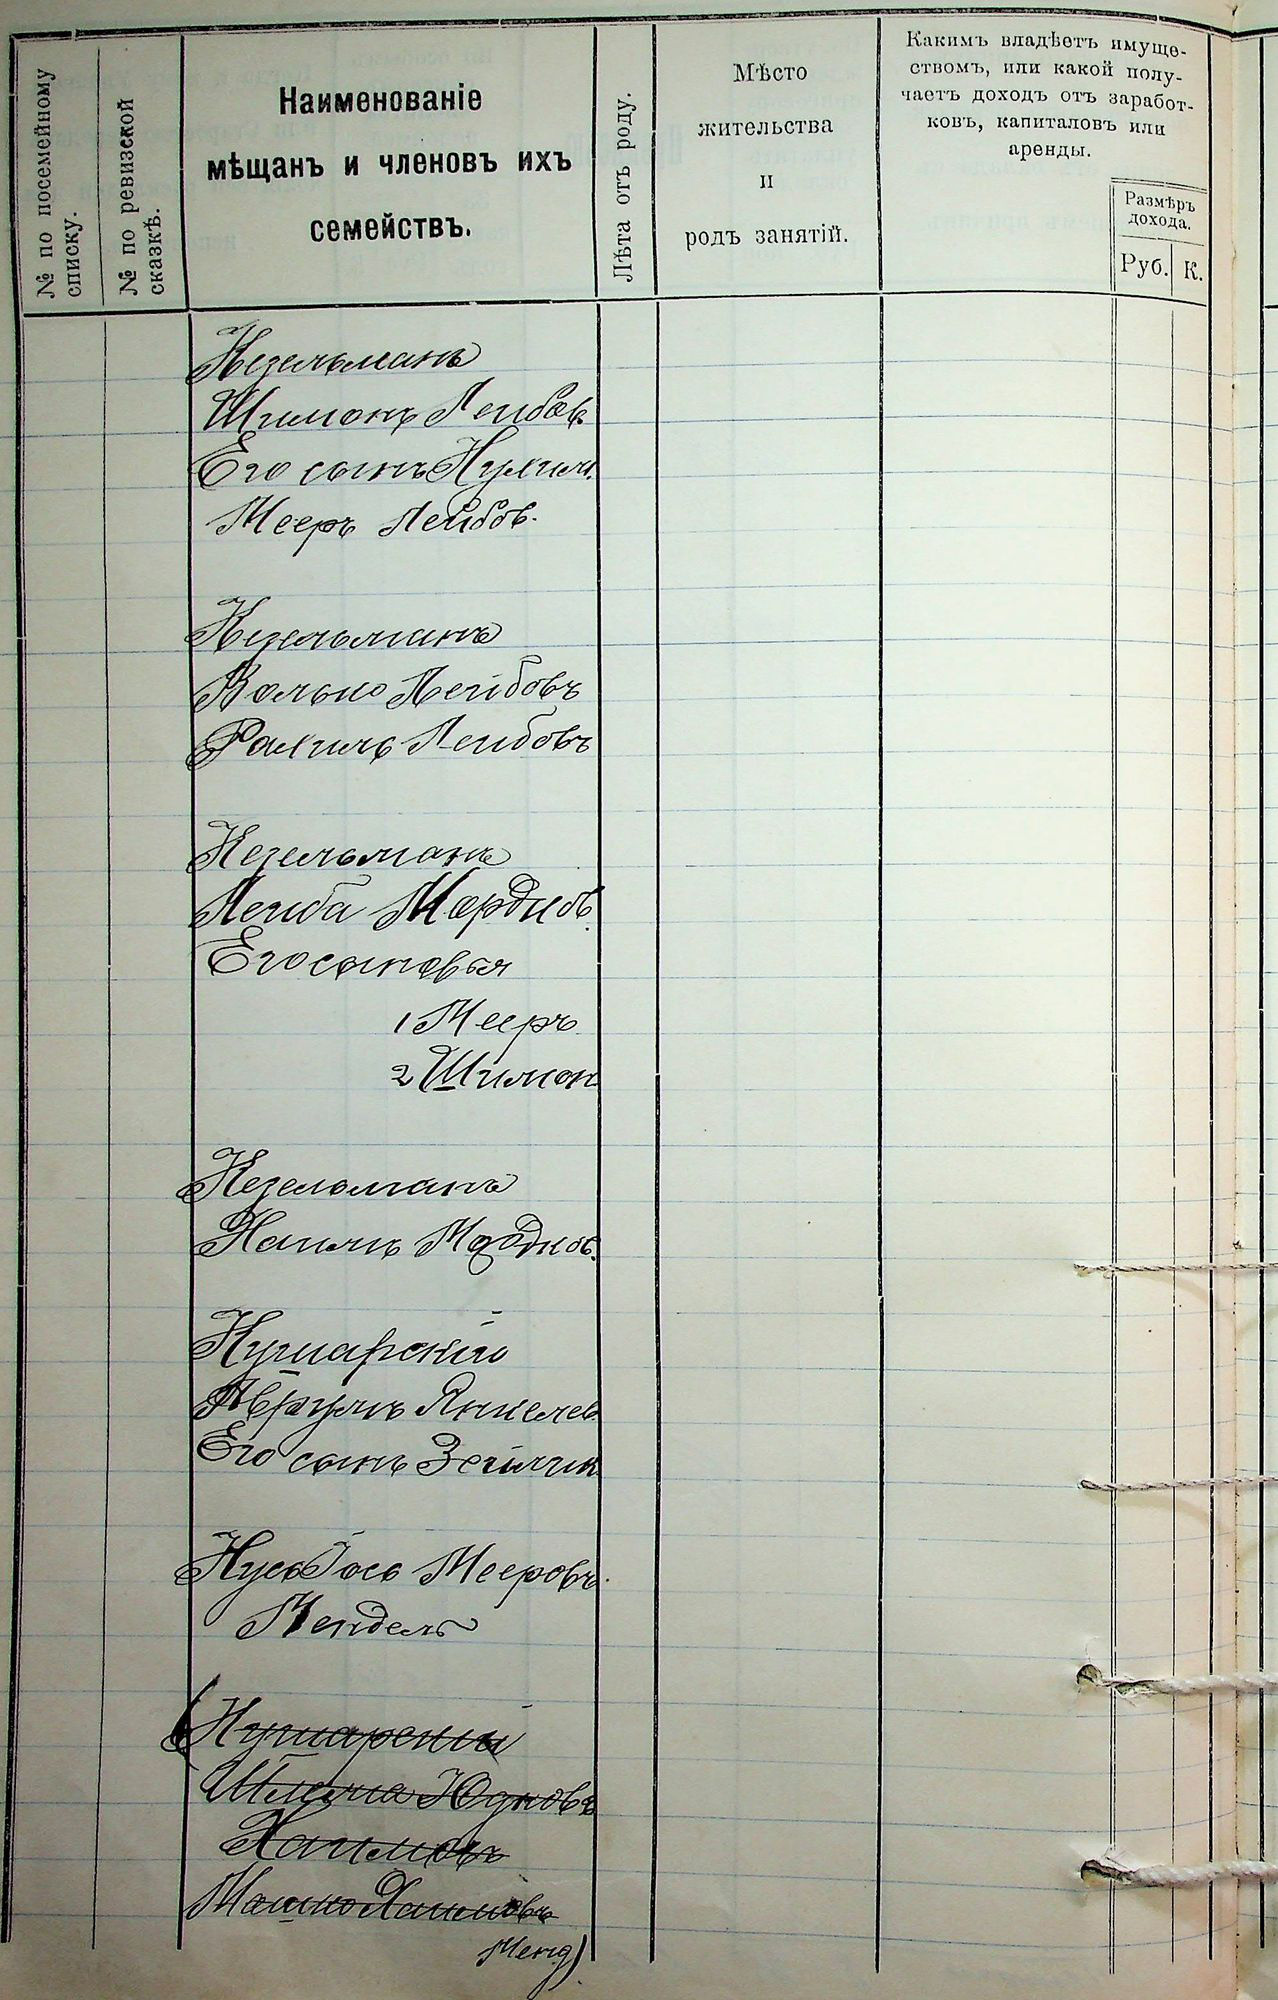 № по посемейному
списку.
№ по ревизской
сказкѣ.
Наименованіе
мѣщанъ и членовъ ихъ
семействъ.
Лѣта отъ роду.
Мѣсто
жительства
и
родъ занятій.
Какимъ владѣетъ имуще-
ствомъ, или какой полу-
чаетъ доходъ отъ заработ-
ковъ, капиталовъ или
аренды.
Размѣръ
дохода.
Руб.
К.
Кезельманъ
Шимонъ Лейбов
Его сынъ
Мееръ Лейбов.
Кезельманъ
Волько Лейбовъ
Рахиль Лейбовъ
Кезельманъ
Лейба Мордков.
Его сыновья
1 Мееръ
2 Шимон
Кезельманъ
Хаимъ Мордков.
Кушарскій
Аврумъ Янкелев
Его сынъ
Мееровъ
Мендель
Кушарскій
Шлема Юдковъ
Хаимовъ
Мошко Хаимовъ
Менд)